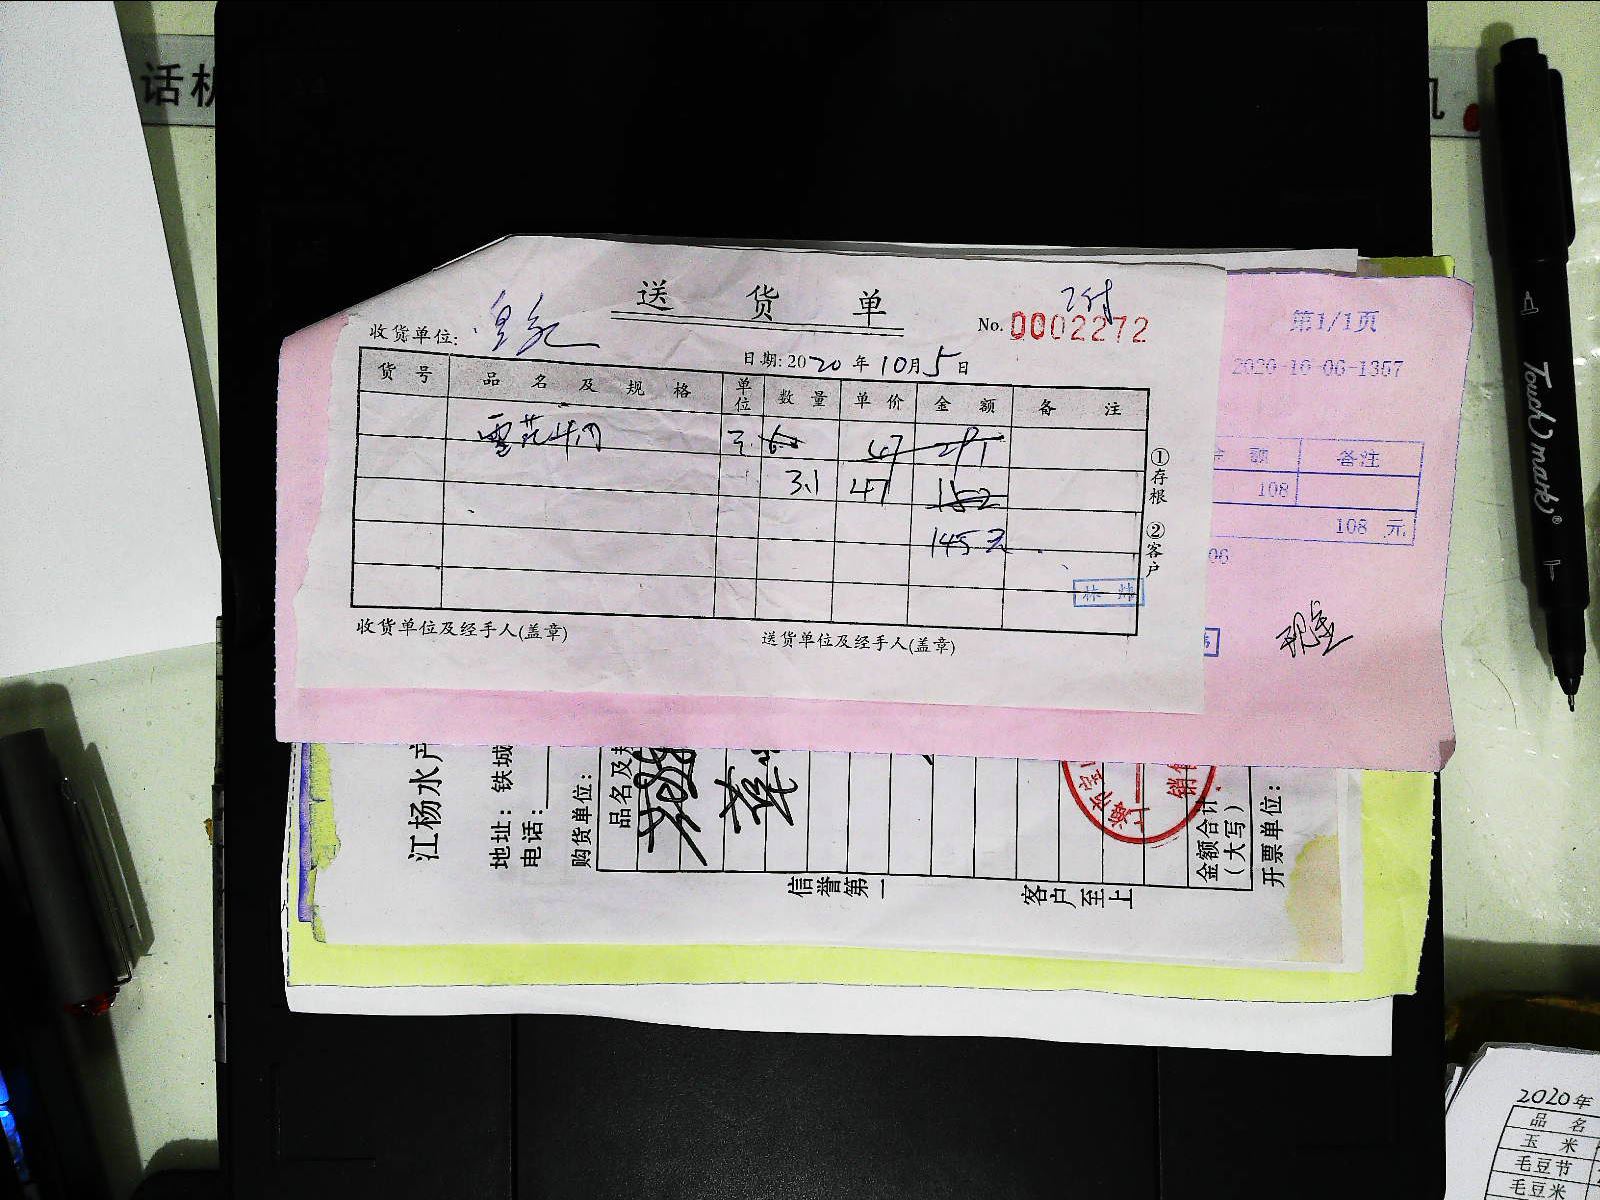 话机
机
送货单
No. 0002272
收货单位:
日期: 2020年10月5日
货号 品名及规格 单位 数量 单价 金额 备注
雪花牛肉 47 291
3.1 47 152
145元
①存根 ②客户
林
收货单位及经手人(盖章) 送货单位及经手人(盖章)
第1/1页
2020-10-06-1357
金额 备注
108
108 元
06
现金
江杨水产
地址: 铁城
电话:
购货单位:
品名及规
信誉第一 客户至上
金额合计
(大写)
开票单位:
上海市宝
销售
Touch mark®
2020年
品名
玉米
毛豆节
毛豆米